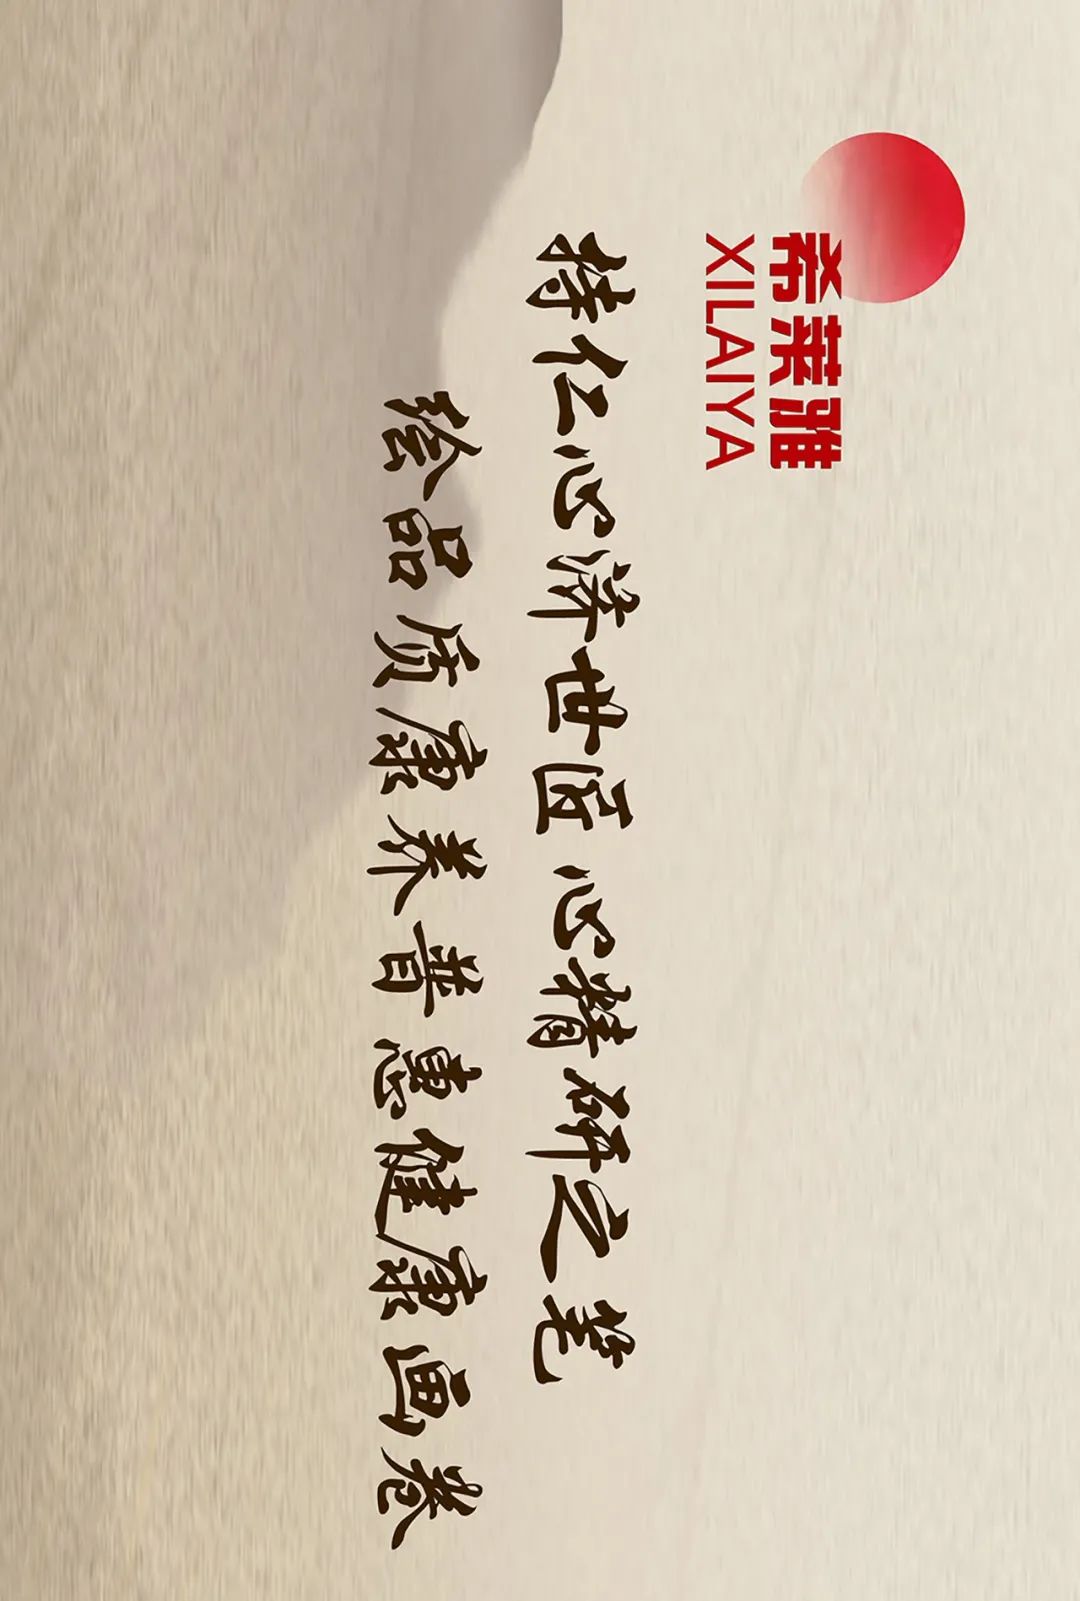 希莱雅
XILAIYA
持仁心济世匠心精研之笔
绘品质康养普惠健康画卷